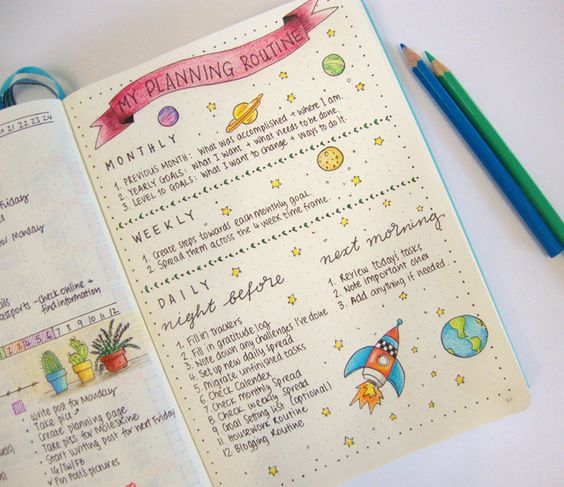 21 22 23 24
Friday
for Monday
passports - check online +
find information
7 8 9 10 11 12
Write post for Monday
Take pic
Create planning page
Take pics for Moleskine
Start writing post for next Friday
IG/TW/FB
Pin Post's pictures
MY PLANNING ROUTINE
MONTHLY
1. PREVIOUS MONTH: what was accomplished + where I am.
2. YEARLY GOALS: what I want + what needs to be done.
3. LEVEL 10 GOALS: what I want to change + ways to do it.
WEEKLY
1. Create steps towards each monthly goal.
2. Spread them across the 4 week time frame.
DAILY
night before
1. Fill in trackers
2. Fill in gratitude log
3. Write down any challenges I've done
4. Set up new daily spread
5. Migrate unfinished tasks
6. Check Calendex
7. Check monthly spread
8. Check weekly spread
9. Goal Setting List (optional)
11. Housework Routine
12. Blogging Routine
next morning
1. Review today's tasks
2. Note important ones
3. Add anything if needed.